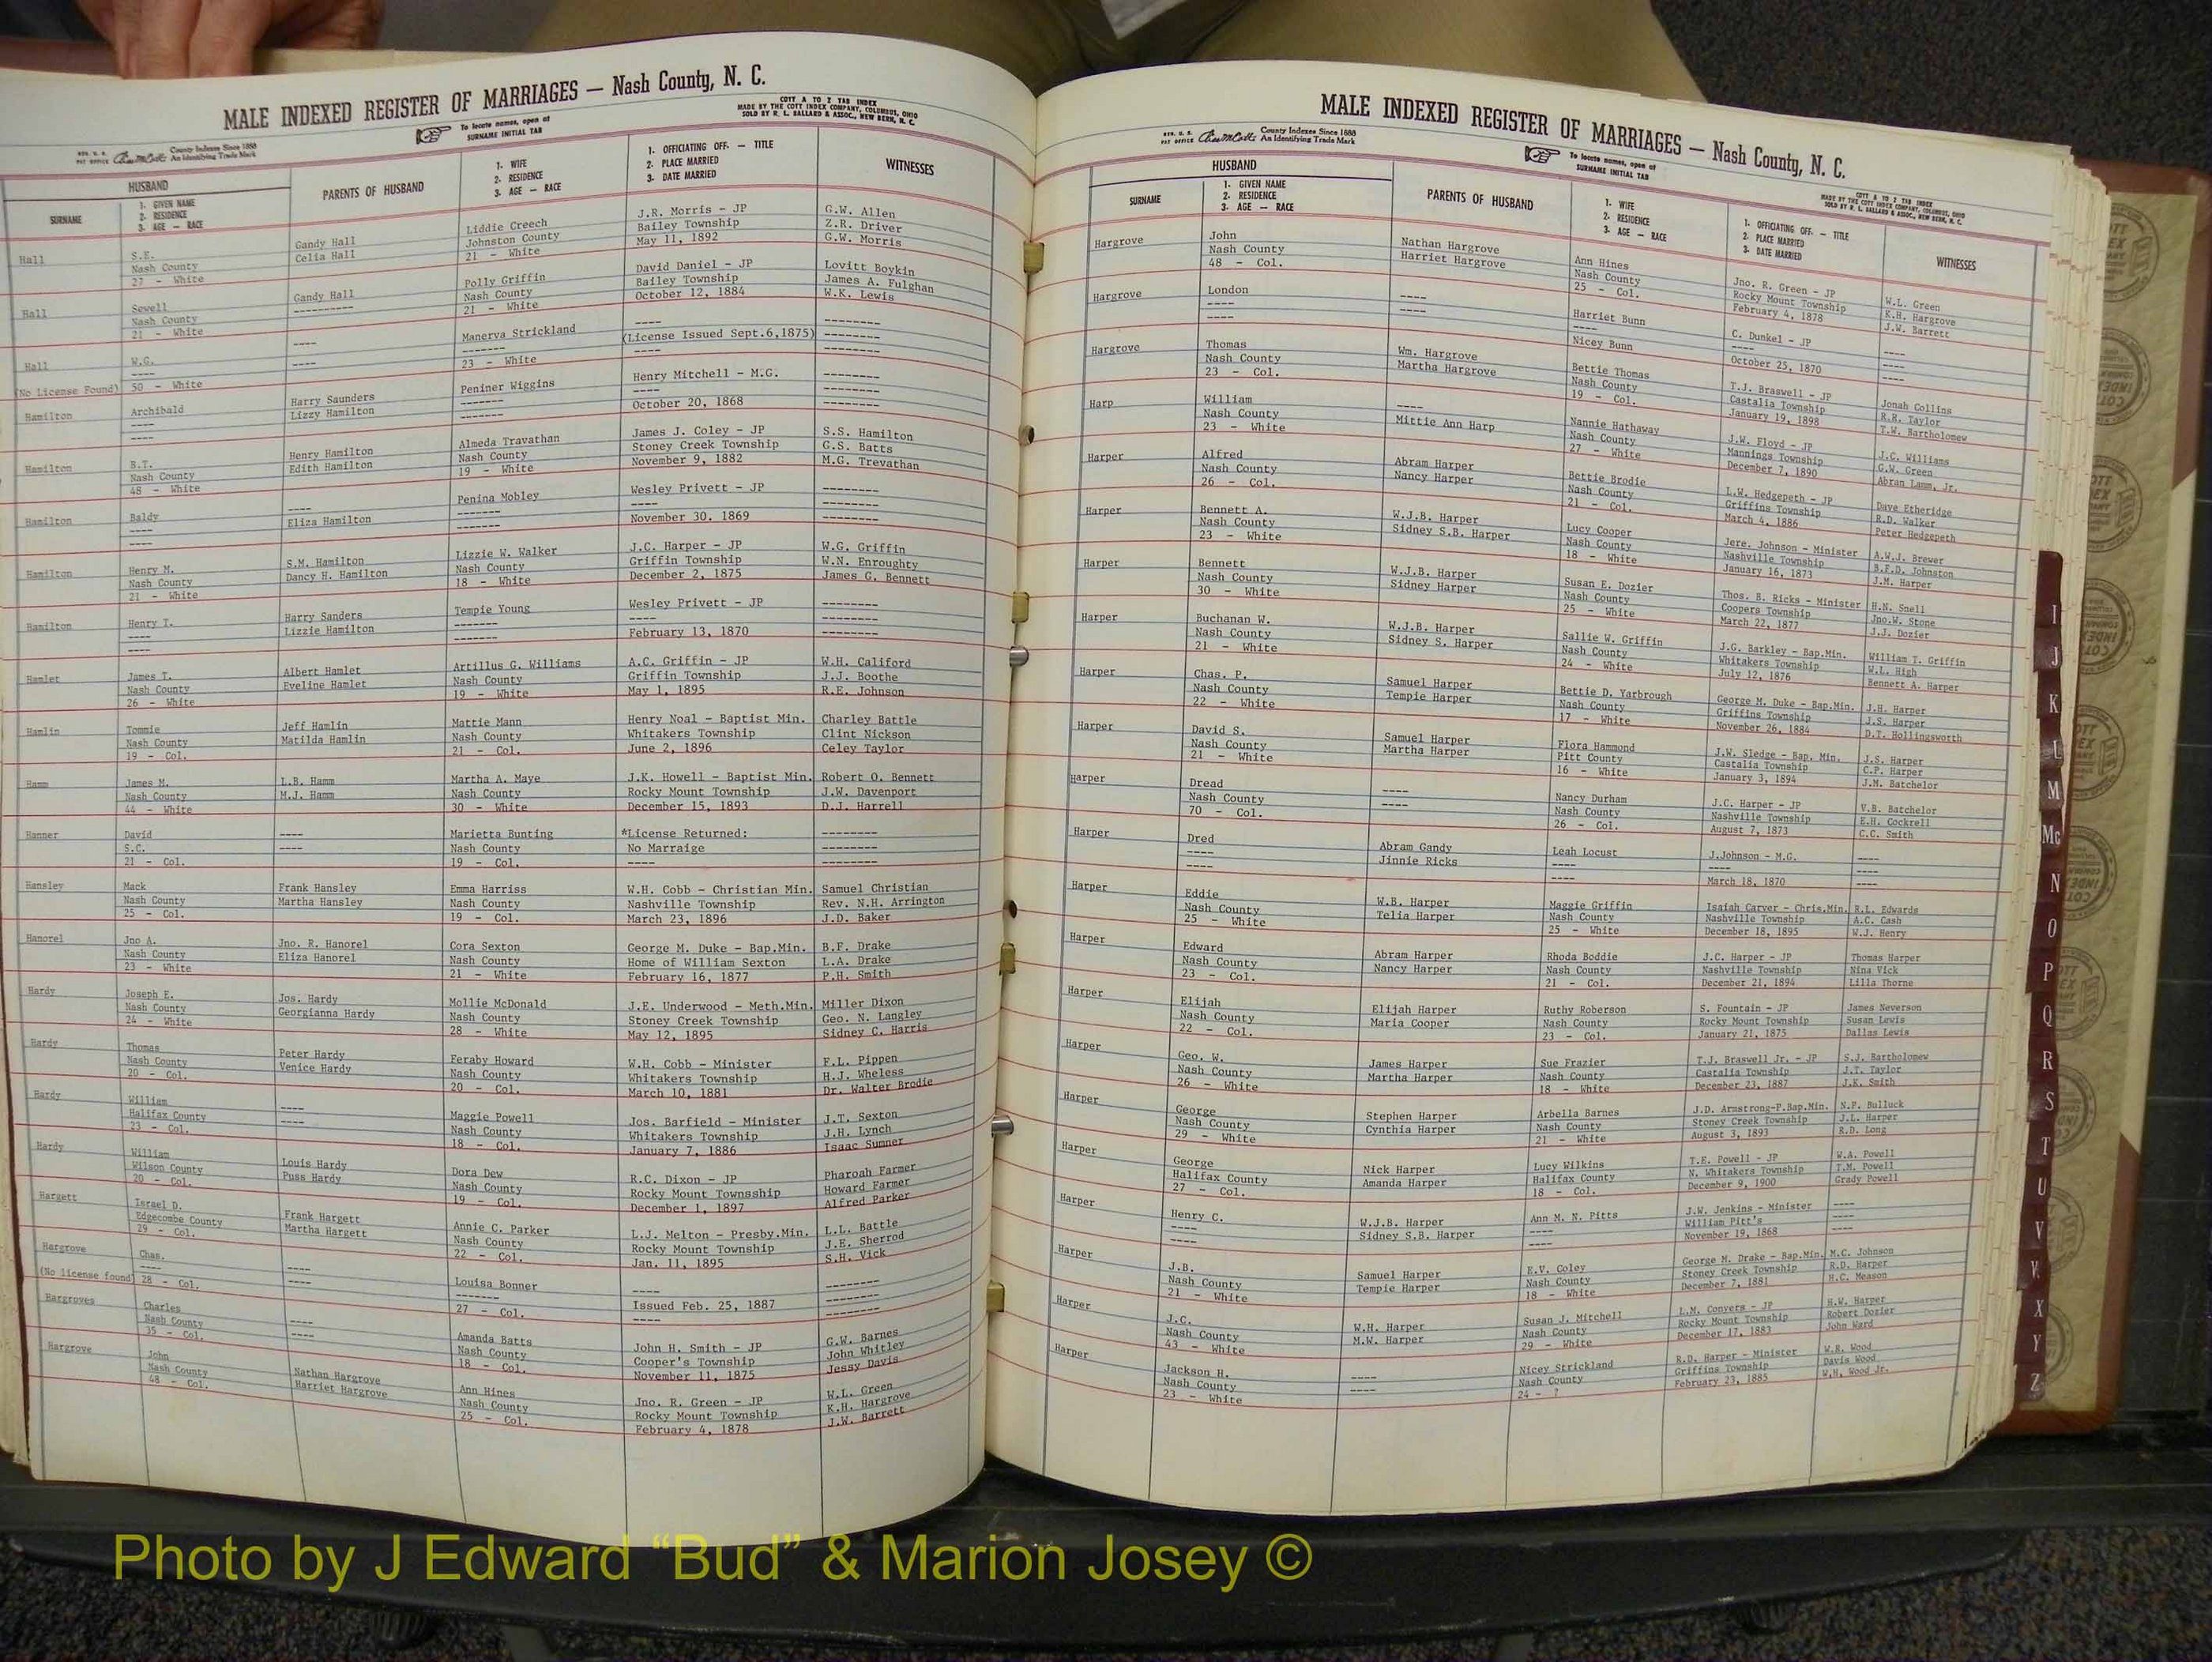 MALE INDEXED REGISTER OF MARRIAGES — Nash County, N. C.
COTT A TO Z TAB INDEX
MADE BY THE COTT INDEX COMPANY, COLUMBUS, OHIO
SOLD BY R. L. BALLARD & ASSOC., NEW BERN, N. C.
To locate names, open at
SURNAME INITIAL TAB
County Indexes Since 1888
An Identifying Trade Mark
HUSBAND
SURNAME
1. GIVEN NAME
2. RESIDENCE
3. AGE — RACE
PARENTS OF HUSBAND
1. WIFE
2. RESIDENCE
3. AGE — RACE
1. OFFICIATING OFF. — TITLE
2. PLACE MARRIED
3. DATE MARRIED
WITNESSES
Hall S.E. Gandy Hall Liddie Creech J.R. Morris - JP G.W. Allen
Nash County Celia Hall Johnston County Bailey Township Z.R. Driver
27 - White 21 - White May 11, 1892 G.W. Morris
Hall Sowell Gandy Hall Polly Griffin David Daniel - JP Lovitt Boykin
Nash County ---------- Nash County Bailey Township James A. Fulghan
21 - White 21 - White October 12, 1884 W.K. Lewis
Hall W.G. ---- Manerva Strickland ---- --------
---- ---- ------- (License Issued Sept.6,1875) --------
(No License Found) 50 - White 23 - White ---- --------
Hamilton Archibald Harry Saunders Peniner Wiggins Henry Mitchell - M.G. --------
---- Lizzy Hamilton ------- ---- --------
---- ------- October 20, 1868 --------
Hamilton B.T. Henry Hamilton Almeda Travathan James J. Coley - JP S.S. Hamilton
Nash County Edith Hamilton Nash County Stoney Creek Township G.S. Batts
48 - White 19 - White November 9, 1882 M.G. Trevathan
Hamilton Baldy ---- Penina Mobley Wesley Privett - JP --------
---- Eliza Hamilton ------- ---- --------
---- ------- November 30. 1869 --------
Hamilton Henry M. S.M. Hamilton Lizzie W. Walker J.C. Harper - JP W.G. Griffin
Nash County Dancy H. Hamilton Nash County Griffin Township W.N. Enroughty
21 - White 18 - White December 2, 1875 James G. Bennett
Hamilton Henry T. Harry Sanders Tempie Young Wesley Privett - JP --------
---- Lizzie Hamilton ------- ---- --------
---- ------- February 13, 1870 --------
Hamlet James T. Albert Hamlet Artillus G. Williams A.C. Griffin - JP W.H. Califord
Nash County Eveline Hamlet Nash County Griffin Township J.J. Boothe
26 - White 19 - White May 1, 1895 R.E. Johnson
Hamlin Tommie Jeff Hamlin Mattie Mann Henry Noal - Baptist Min. Charley Battle
Nash County Matilda Hamlin Nash County Whitakers Township Clint Nickson
19 - Col. 21 - Col. June 2, 1896 Celey Taylor
Hamm James M. L.B. Hamm Martha A. Maye J.K. Howell - Baptist Min. Robert O. Bennett
Nash County M.J. Hamm Nash County Rocky Mount Township J.W. Davenport
44 - White 30 - White December 15, 1893 D.J. Harrell
Hanner David ---- Marietta Bunting *License Returned: --------
S.C. ---- Nash County No Marraige --------
21 - Col. 19 - Col. ---- --------
Hansley Mack Frank Hansley Emma Harriss W.H. Cobb - Christian Min. Samuel Christian
Nash County Martha Hansley Nash County Nashville Township Rev. N.H. Arrington
25 - Col. 19 - Col. March 23, 1896 J.D. Baker
Hanorel Jno A. Jno. R. Hanorel Cora Sexton George M. Duke - Bap.Min. B.F. Drake
Nash County Eliza Hanorel Nash County Home of William Sexton L.A. Drake
23 - White 21 - White February 16, 1877 P.H. Smith
Hardy Joseph E. Jos. Hardy Mollie McDonald J.E. Underwood - Meth.Min. Miller Dixon
Nash County Georgianna Hardy Nash County Stoney Creek Township Geo. N. Langley
24 - White 28 - White May 12, 1895 Sidney C. Harris
Hardy Thomas Peter Hardy Feraby Howard W.H. Cobb - Minister F.L. Pippen
Nash County Venice Hardy Nash County Whitakers Township H.J. Wheless
20 - Col. 20 - Col. March 10, 1881 Dr. Walter Brodie
Hardy William ---- Maggie Powell Jos. Barfield - Minister J.T. Sexton
Halifax County ---- Nash County Whitakers Township J.H. Lynch
23 - Col. 18 - Col. January 7, 1886 Isaac Sumner
Hardy William Louis Hardy Dora Dew R.C. Dixon - JP Pharoah Farmer
Wilson County Puss Hardy Nash County Rocky Mount Townsship Howard Farmer
20 - Col. 19 - Col. December 1, 1897 Alfred Parker
Hargett Israel D. Frank Hargett Annie C. Parker L.J. Melton - Presby.Min. L.L. Battle
Edgecombe County Martha Hargett Nash County Rocky Mount Township J.E. Sherrod
29 - Col. 22 - Col. Jan. 11, 1895 S.H. Vick
Hargrove Chas. ---- Louisa Bonner ---- --------
---- ---- ------- Issued Feb. 25, 1887 --------
(No license found) 28 - Col. 27 - Col. ---- --------
Hargroves Charles ---- Amanda Batts John H. Smith - JP G.W. Barnes
Nash County ---- Nash County Cooper's Township John Whitley
35 - Col. 18 - Col. November 11, 1875 Jessy Davis
Hargrove John Nathan Hargrove Ann Hines Jno. R. Green - JP W.L. Green
Nash County Harriet Hargrove Nash County Rocky Mount Township K.H. Hargrove
48 - Col. 25 - Col. February 4, 1878 J.W. Barrett
MALE INDEXED REGISTER OF MARRIAGES — Nash County, N. C.
County Indexes Since 1888
An Identifying Trade Mark
To locate names, open at
SURNAME INITIAL TAB
COTT A TO Z TAB INDEX
MADE BY THE COTT INDEX COMPANY, COLUMBUS, OHIO
SOLD BY R. L. BALLARD & ASSOC., NEW BERN, N. C.
HUSBAND
SURNAME
1. GIVEN NAME
2. RESIDENCE
3. AGE — RACE
PARENTS OF HUSBAND
1. WIFE
2. RESIDENCE
3. AGE — RACE
1. OFFICIATING OFF. — TITLE
2. PLACE MARRIED
3. DATE MARRIED
WITNESSES
Hargrove John Nathan Hargrove Ann Hines Jno. R. Green - JP W.L. Green
Nash County Harriet Hargrove Nash County Rocky Mount Township K.H. Hargrove
48 - Col. 25 - Col. February 4, 1878 J.W. Barrett
Hargrove London ---- Harriet Bunn C. Dunkel - JP ----
---- ---- ---- ---- ----
---- Nicey Bunn October 25, 1870 ----
Hargrove Thomas Wm. Hargrove Bettie Thomas T.J. Braswell - JP Jonah Collins
Nash County Martha Hargrove Nash County Castalia Township R.R. Taylor
23 - Col. 19 - Col. January 19, 1898 T.W. Bartholomew
Harp William ---- Nannie Hathaway J.W. Floyd - JP J.C. Williams
Nash County Mittie Ann Harp Nash County Mannings Township G.W. Green
23 - White 27 - White December 7, 1890 Abran Lamm, Jr.
Harper Alfred Abram Harper Bettie Brodie L.W. Hedgepeth - JP Dave Etheridge
Nash County Nancy Harper Nash County Griffins Township R.D. Walker
26 - Col. 21 - Col. March 4, 1886 Peter Hedgepeth
Harper Bennett A. W.J.B. Harper Lucy Cooper Jere. Johnson - Minister A.W.J. Brewer
Nash County Sidney S.B. Harper Nash County Nashville Township B.F.D. Johnston
23 - White 18 - White January 16, 1873 J.M. Harper
Harper Bennett W.J.B. Harper Susan E. Dozier Thos. B. Ricks - Minister H.N. Snell
Nash County Sidney Harper Nash County Coopers Township Jno.W. Stone
30 - White 25 - White March 22, 1877 J.J. Dozier
Harper Buchanan W. W.J.B. Harper Sallie W. Griffin J.G. Barkley - Bap.Min. William T. Griffin
Nash County Sidney S. Harper Nash County Whitakers Township W.L. High
21 - White 24 - White July 12, 1876 Bennett A. Harper
Harper Chas. P. Samuel Harper Bettie D. Yarbrough George M. Duke - Bap.Min. J.H. Harper
Nash County Tempie Harper Nash County Griffins Township J.S. Harper
22 - White 17 - White November 26, 1884 D.T. Hollingsworth
Harper David S. Samuel Harper Flora Hammond J.W. Sledge - Bap. Min. J.S. Harper
Nash County Martha Harper Pitt County Castalia Township C.P. Harper
21 - White 16 - White January 3, 1894 J.M. Batchelor
Harper Dread ---- Nancy Durham J.C. Harper - JP V.B. Batchelor
Nash County ---- Nash County Nashville Township E.H. Cockrell
70 - Col. 26 - Col. August 7, 1873 C.C. Smith
Harper Dred Abram Gandy Leah Locust J.Johnson - M.G. ----
---- Jinnie Ricks ---- ---- ----
---- ---- March 18, 1870 ----
Harper Eddie W.B. Harper Maggie Griffin Isaiah Carver - Chris.Min. R.L. Edwards
Nash County Telia Harper Nash County Nashville Township A.C. Cash
25 - White 25 - White December 18, 1895 W.J. Henry
Harper Edward Abram Harper Rhoda Boddie J.C. Harper - JP Thomas Harper
Nash County Nancy Harper Nash County Nashville Township Nina Vick
23 - Col. 21 - Col. December 21, 1894 Lilla Thorne
Harper Elijah Elijah Harper Ruthy Roberson S. Fountain - JP James Neverson
Nash County Maria Cooper Nash County Rocky Mount Township Susan Lewis
22 - Col. 23 - Col. January 21, 1875 Dallas Lewis
Harper Geo. W. James Harper Sue Frazier T.J. Braswell Jr. - JP S.J. Bartholomew
Nash County Martha Harper Nash County Castalia Township J.T. Taylor
26 - White 18 - White December 23, 1887 J.K. Smith
Harper George Stephen Harper Arbella Barnes J.D. Armstrong-P.Bap.Min. N.F. Bulluck
Nash County Cynthia Harper Nash County Stoney Creek Township J.L. Harper
29 - White 21 - White August 3, 1893 R.D. Long
Harper George Nick Harper Lucy Wilkins T.E. Powell - JP W.A. Powell
Halifax County Amanda Harper Halifax County N. Whitakers Township T.M. Powell
27 - Col. 18 - Col. December 9, 1900 Grady Powell
Harper Henry C. W.J.B. Harper Ann M. N. Pitts J.W. Jenkins - Minister ----
---- Sidney S.B. Harper ---- William Pitt's ----
---- ---- November 19, 1868 ----
Harper J.B. Samuel Harper E.V. Coley George M. Drake - Bap.Min. M.C. Johnson
Nash County Tempie Harper Nash County Stoney Creek Township R.D. Harper
21 - White 18 - White December 7, 1881 H.C. Meason
Harper J.C. W.H. Harper Susan J. Mitchell L.M. Conyers - JP H.W. Harper
Nash County M.W. Harper Nash County Rocky Mount Township Robert Dozier
43 - White 29 - White December 17, 1883 John Ward
Harper Jackson H. ---- Nicey Strickland R.D. Harper - Minister W.R. Wood
Nash County ---- Nash County Griffins Township Davis Wood
23 - White 24 - ? February 23, 1885 W.H. Wood Jr.
I
J
K
L
M
Mc
N
O
P
Q
R
S
T
U
V
W
X
Y
Z
Photo by J Edward “Bud” & Marion Josey ©